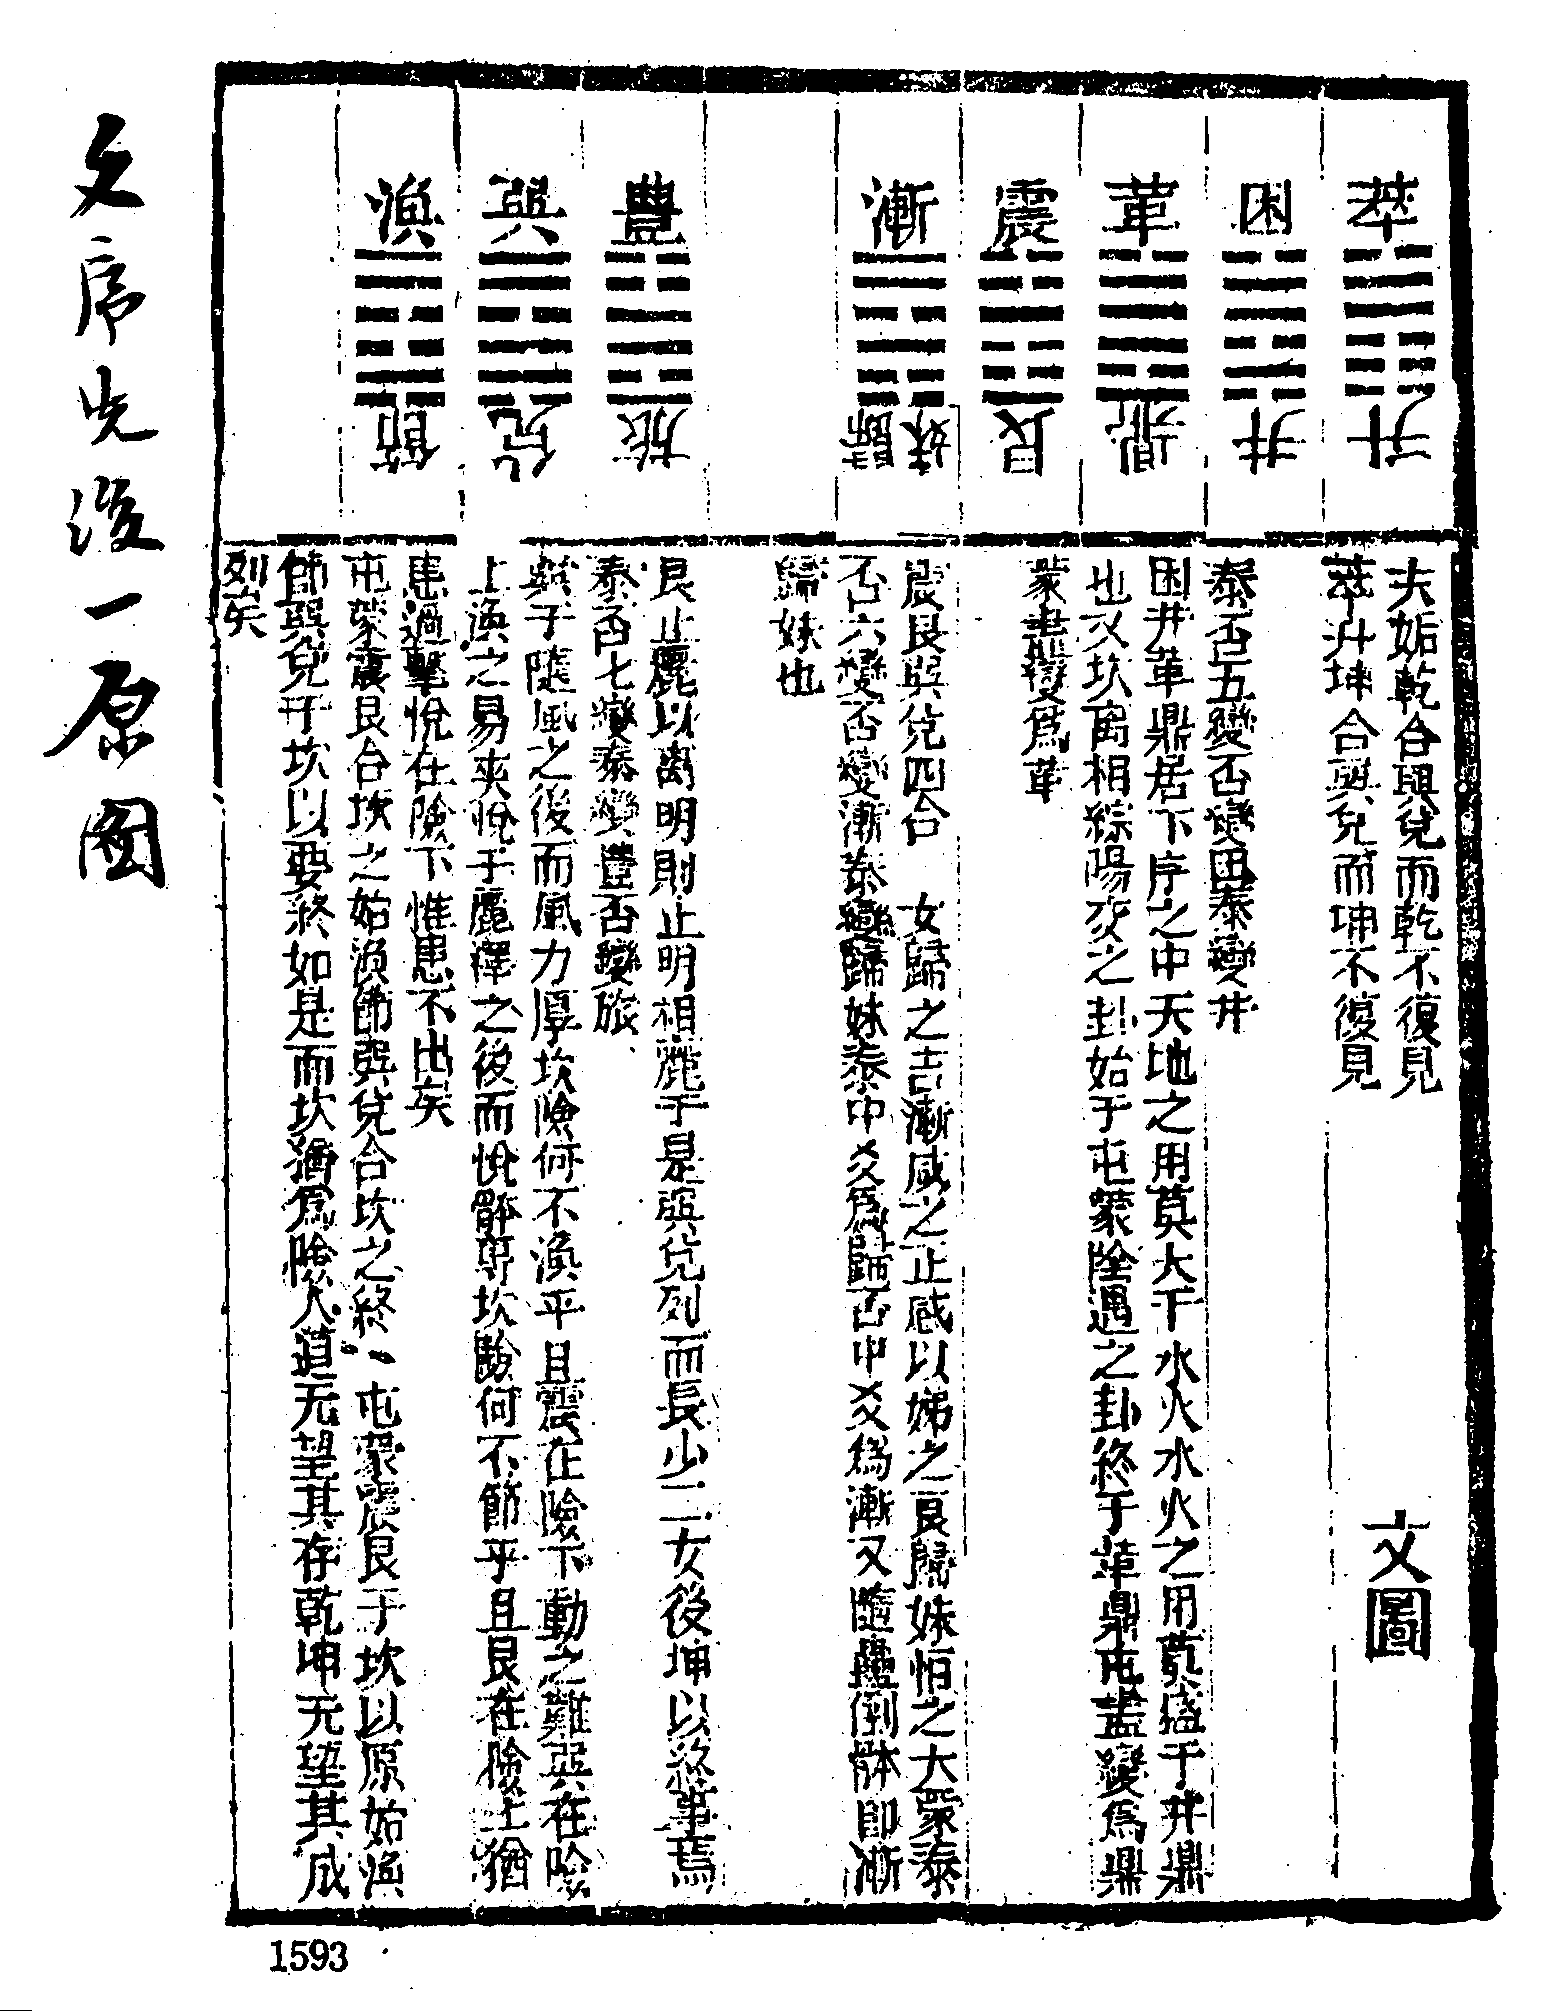 萃 升
困 井
革 鼎
震 艮
漸 歸妹
豐 旅
巽 兌
渙 節
夬姤乾合巽兌而乾不復見
萃升坤合巽兌而坤不復見
文圖
泰否五變否變困泰變井
困井革鼎居下序之中天地之用莫大于水火水火之用莫盛于井鼎
也又坎离相綜陽交之卦始于屯蒙陰遇之卦終于革鼎屯盡變爲鼎
蒙盡變爲革
震艮巽兌四合 女歸之吉漸咸之止感以娣之一艮歸妹恒之大眾泰
否六變否變漸泰變歸妹泰中爻爲歸否中爻爲漸又隨蠱倒體卽漸
歸妹也
艮止麗以离明則止明相麗于是巽兌列而長少二女後坤以終事焉
泰否七變泰變豐否變旅
巽于隨風之後而風力厚坎險何不渙乎且震在險下動之難巽在險
上渙之易夬悅于麗擇之後而悅體專坎險何不節乎且艮在險上猶
患過擊悅在險下惟患不出矣
屯蒙震艮合坎之始渙節巽兌合坎之終 屯蒙震艮于坎以原始渙
節巽兌于坎以要終如是而坎猶爲險人道无望其存乾坤无望其成
列矣
文序先後一原圖
1593